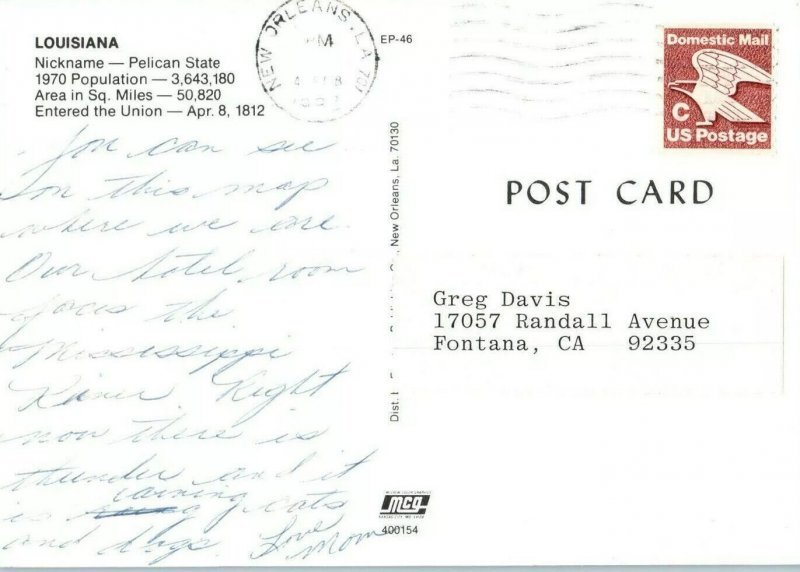 LOUISIANA
Nickname — Pelican State
1970 Population — 3,643,180
Area in Sq. Miles — 50,820
Entered the Union — Apr. 8, 1812
NEW ORLEANS, LA 701
PM
EP-46
Domestic Mail
C
US Postage
You can see
on this map
where we are.
Our hotel room
faces the
Mississippi
River. Right
now there is
thunder and it
is raining cats
and dogs. Love
Mom
New Orleans, La. 70130
Dist.
POST CARD
Greg Davis
17057 Randall Avenue
Fontana, CA 92335
mcg
400154